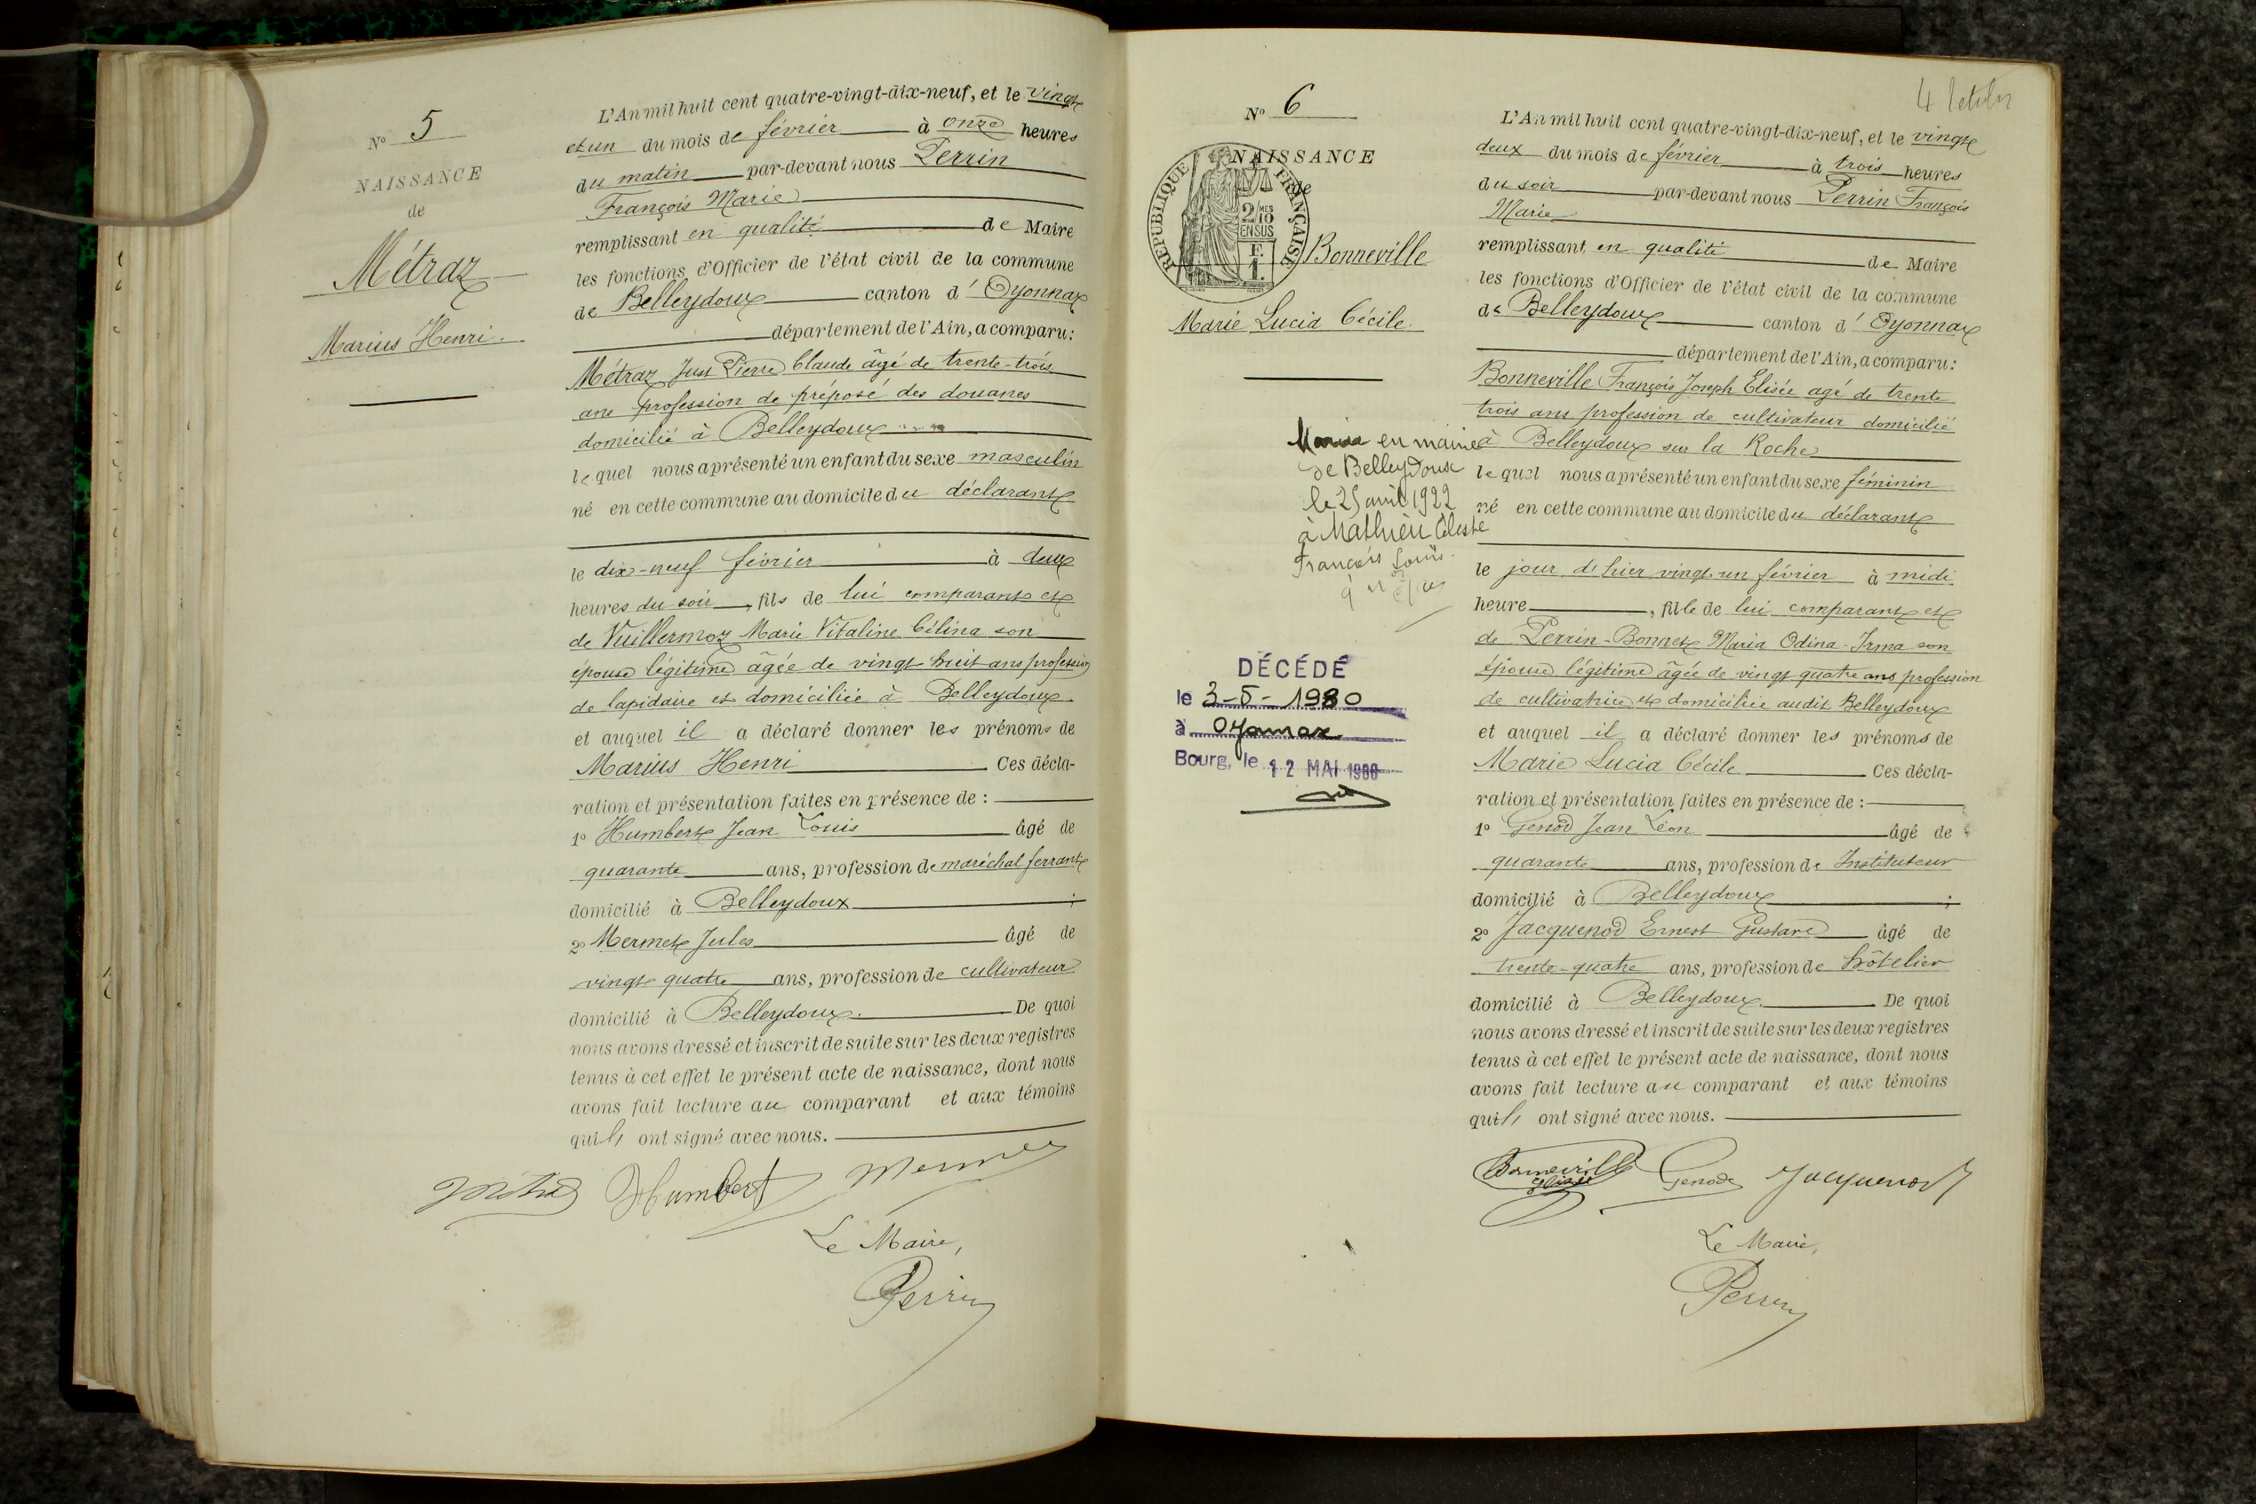 N° 5
NAISSANCE
de
Métraz
Marius Henri.
L'An mil huit cent quatre-vingt-dix-neuf, et le vingt
et un du mois de février à onze heures
du matin par-devant nous Perrin
François Marie
remplissant en qualité de Maire
les fonctions d'Officier de l'état civil de la commune
de Belleydoux canton d' Oyonnax
département de l'Ain, a comparu:
Métraz Just Pierre Claude âgé de trente-trois
ans profession de préposé des douanes
domicilié à Belleydoux
lequel nous a présenté un enfant du sexe masculin
né en cette commune au domicile du déclarant
le dix-neuf février à deux
heures du soir, fils de lui comparant et
de Vuillermoz Marie Vitaline Célina son
épouse légitime âgée de vingt-huit ans profession
de lapidaire et domiciliée à Belleydoux
et auquel il a déclaré donner les prénoms de
Marius Henri Ces décla-
ration et présentation faites en présence de :
1° Humbert Jean Louis âgé de
quarante ans, profession de maréchal ferrant
domicilié à Belleydoux ;
2° Mermet Jules âgé de
vingt quatre ans, profession de cultivateur
domicilié à Belleydoux. De quoi
nous avons dressé et inscrit de suite sur les deux registres
tenus à cet effet le présent acte de naissance, dont nous
avons fait lecture au comparant et aux témoins
qu'ils ont signé avec nous.
Métraz Humbert Mermet
Le Maire,
Perrin
N° 6
NAISSANCE
de
RÉPUBLIQUE FRANÇAISE
2/10
MES
EN SUS
F.
1.
Bonneville
Marie Lucia Cécile.
Mariée en mairie
de Belleydoux
le 25 avril 1922
à Mathieu Céleste
François Louis.
DÉCÉDÉ
le 3-5-1980
à Oyonnax
Bourg, le 12 MAI 1980
L'An mil huit cent quatre-vingt-dix-neuf, et le vingt
deux du mois de février à trois heures
du soir par-devant nous Perrin François
Marie
remplissant en qualité de Maire
les fonctions d'Officier de l'état civil de la commune
de Belleydoux canton d' Oyonnax
département de l'Ain, a comparu:
Bonneville François Joseph Elisée agé de trente
trois ans profession de cultivateur domicilié
à Belleydoux sur la Roche
lequel nous a présenté un enfant du sexe féminin
né en cette commune au domicile du déclarant
le jour d'hier vingt-un février à midi
heure , fille de lui comparant et
de Perrin-Bonnet Maria Odina Irma son
épouse légitime âgée de vingt quatre ans profession
de cultivatrice et domiciliée audit Belleydoux
et auquel il a déclaré donner les prénoms de
Marie Lucia Cécile Ces décla-
ration et présentation faites en présence de :
1° Genod Jean Léon âgé de
quarante ans, profession de Instituteur
domicilié à Belleydoux ;
2° Jacquenod Ernest Gustave âgé de
trente-quatre ans, profession de hôtelier
domicilié à Belleydoux. De quoi
nous avons dressé et inscrit de suite sur les deux registres
tenus à cet effet le présent acte de naissance, dont nous
avons fait lecture au comparant et aux témoins
qu'ils ont signé avec nous.
Bonneville Elisée Genod Jacquenod
Le Maire,
Perrin